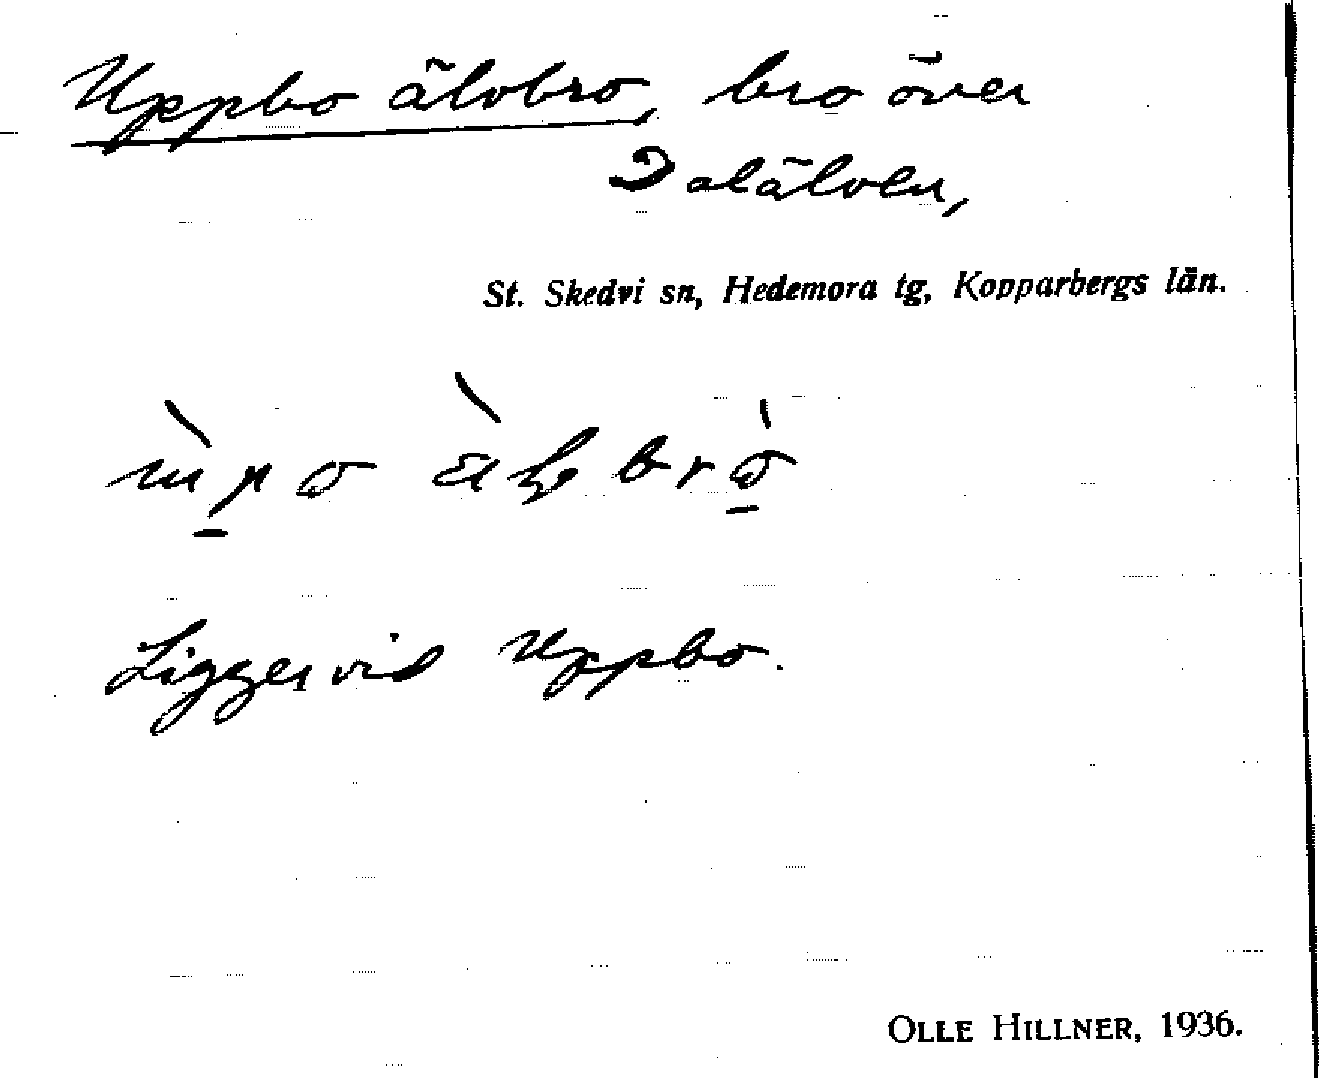 Uppbo älvbro, bro över
Dalälven,
St. Skedvi sn, Hedemora tg, Kopparbergs län.
Ligger vid Uppbo.
OLLE HILLNER, 1936.